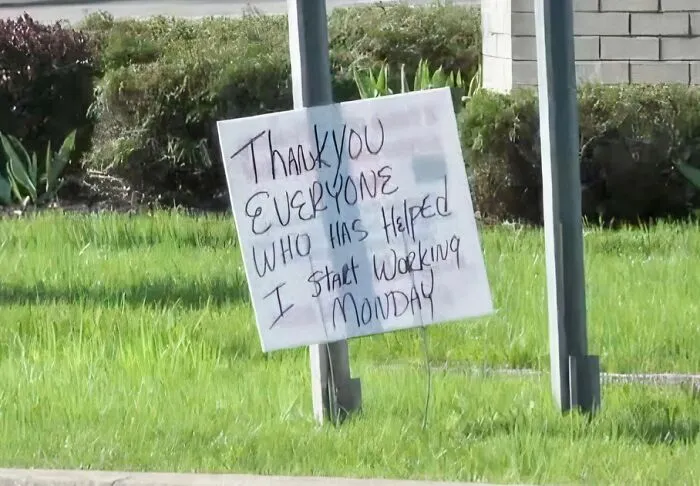 THANKYOU
EVERYONE
WHO HAS HELPED
I START WORKING
MONDAY